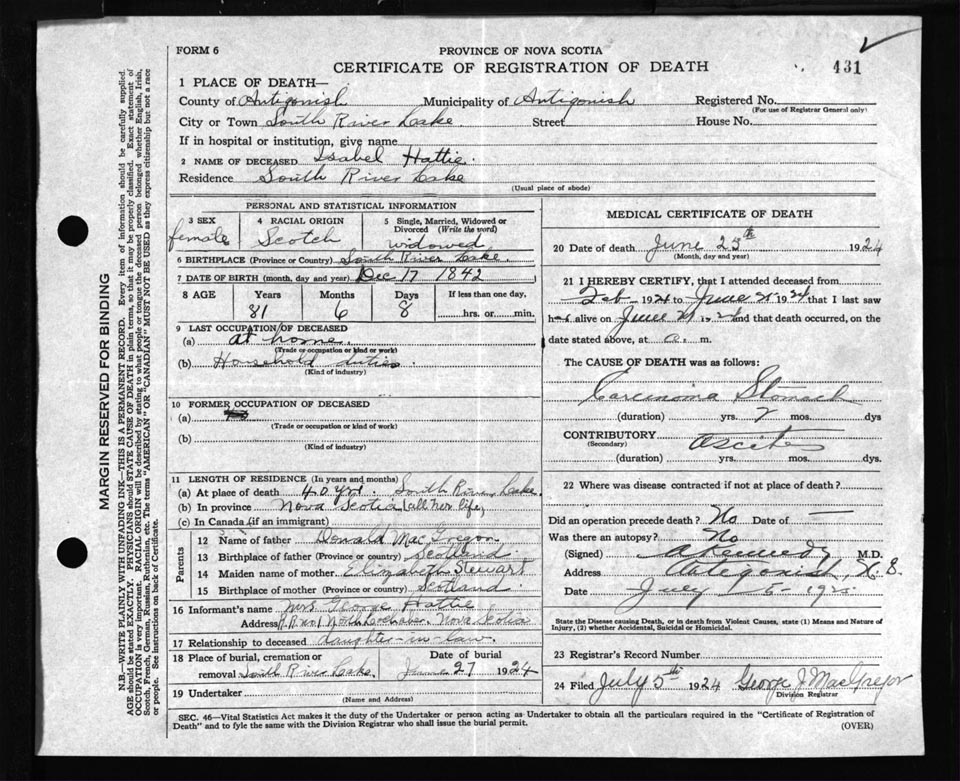 FORM 6
PROVINCE OF NOVA SCOTIA
CERTIFICATE OF REGISTRATION OF DEATH
431
1 PLACE OF DEATH—
County of Antigonish Municipality of Antigonish Registered No.
(For use of Registrar General only)
City or Town South River Lake Street House No.
If in hospital or institution, give name
2 NAME OF DECEASED Isabel Hattie.
Residence South River Lake
(Usual place of abode)
PERSONAL AND STATISTICAL INFORMATION
3 SEX 4 RACIAL ORIGIN 5 Single, Married, Widowed or Divorced (Write the word)
female Scotch widowed
6 BIRTHPLACE (Province or Country) South River Lake.
7 DATE OF BIRTH (month, day and year) Dec 17 1842
8 AGE Years Months Days If less than one day,
81 6 8 hrs. or min.
9 LAST OCCUPATION OF DECEASED
(a) at home.
(Trade or occupation or kind or work)
(b) Household duties
(Kind of industry)
10 FORMER OCCUPATION OF DECEASED
(a)
(Trade or occupation or kind of work)
(b)
(Kind of industry)
11 LENGTH OF RESIDENCE (In years and months)
(a) At place of death 40 yrs. South River Lake.
(b) In province Nova Scotia (all her life)
(c) In Canada (if an immigrant)
Parents
12 Name of father Donald MacGregor
13 Birthplace of father (Province or country) Scotland
14 Maiden name of mother Elizabeth Stewart
15 Birthplace of mother (Province or country) Scotland
16 Informant's name Mrs George Hattie
Address R.R. no 1 North Lochaber, Nova Scotia
17 Relationship to deceased daughter-in-law.
18 Place of burial, cremation or removal South River Lake Date of burial June 27 1924
19 Undertaker
(Name and Address)
MEDICAL CERTIFICATE OF DEATH
20 Date of death June 25th 1924
(Month, day and year)
21 I HEREBY CERTIFY, that I attended deceased from
Feb 1924 to June 1924 that I last saw
her alive on June 1924 and that death occurred, on the
date stated above, at a. m.
The CAUSE OF DEATH was as follows:
Carcinoma Stomach
(duration) yrs. 7 mos. dys
CONTRIBUTORY Ascites
(Secondary)
(duration) yrs. mos. dys.
22 Where was disease contracted if not at place of death?
Did an operation precede death? No Date of —
Was there an autopsy? No
(Signed) A Kennedy M.D.
Address Antigonish, N. S.
Date July
State the Disease causing Death, or in death from Violent Causes, state (1) Means and Nature of
Injury, (2) whether Accidental, Suicidal or Homicidal.
23 Registrar's Record Number
24 Filed July 5th 1924 George J MacGregor
Division Registrar
SEC. 46—Vital Statistics Act makes it the duty of the Undertaker or person acting as Undertaker to obtain all the particulars required in the "Certificate of Registration of
Death" and to fyle the same with the Division Registrar who shall issue the burial permit.
(OVER)
MARGIN RESERVED FOR BINDING
N.B.—WRITE PLAINLY WITH UNFADING INK—THIS IS A PERMANENT RECORD. Every item of information should be carefully supplied.
AGE should be stated EXACTLY. PHYSICIANS should STATE CAUSE OF DEATH in plain terms, so that it may be properly classified. Exact statement of
OCCUPATION is very important. RACIAL ORIGIN will be described by stating to what people or tongue the deceased person belonged whether English, Irish,
Scotch, French, German, Russian, Ruthenian, etc. The terms "AMERICAN" OR "CANADIAN" MUST NOT BE USED as they express citizenship but not a race
or people. See instructions on back of Certificate.